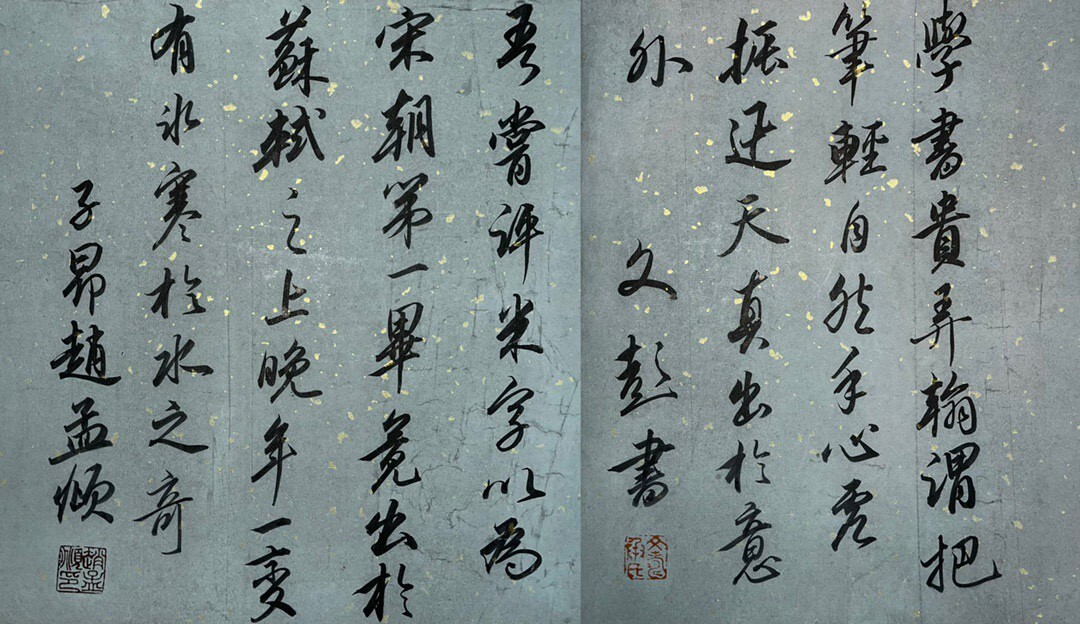 學書貴弄翰謂把
筆輕自然手心虛
振迅天真出於意
外
文彭書
文壽承氏
吾嘗評米字以為
宋朝第一畢竟出於
蘇軾之上晚年一變
有氷寒於水之奇
子昂趙孟頫
趙孟頫印